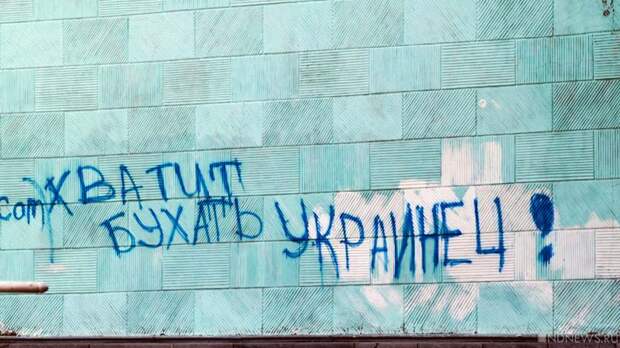 com) ХВАТИТ
БУХАТЬ УКРАИНЕЦ!
NDNEWS.RU